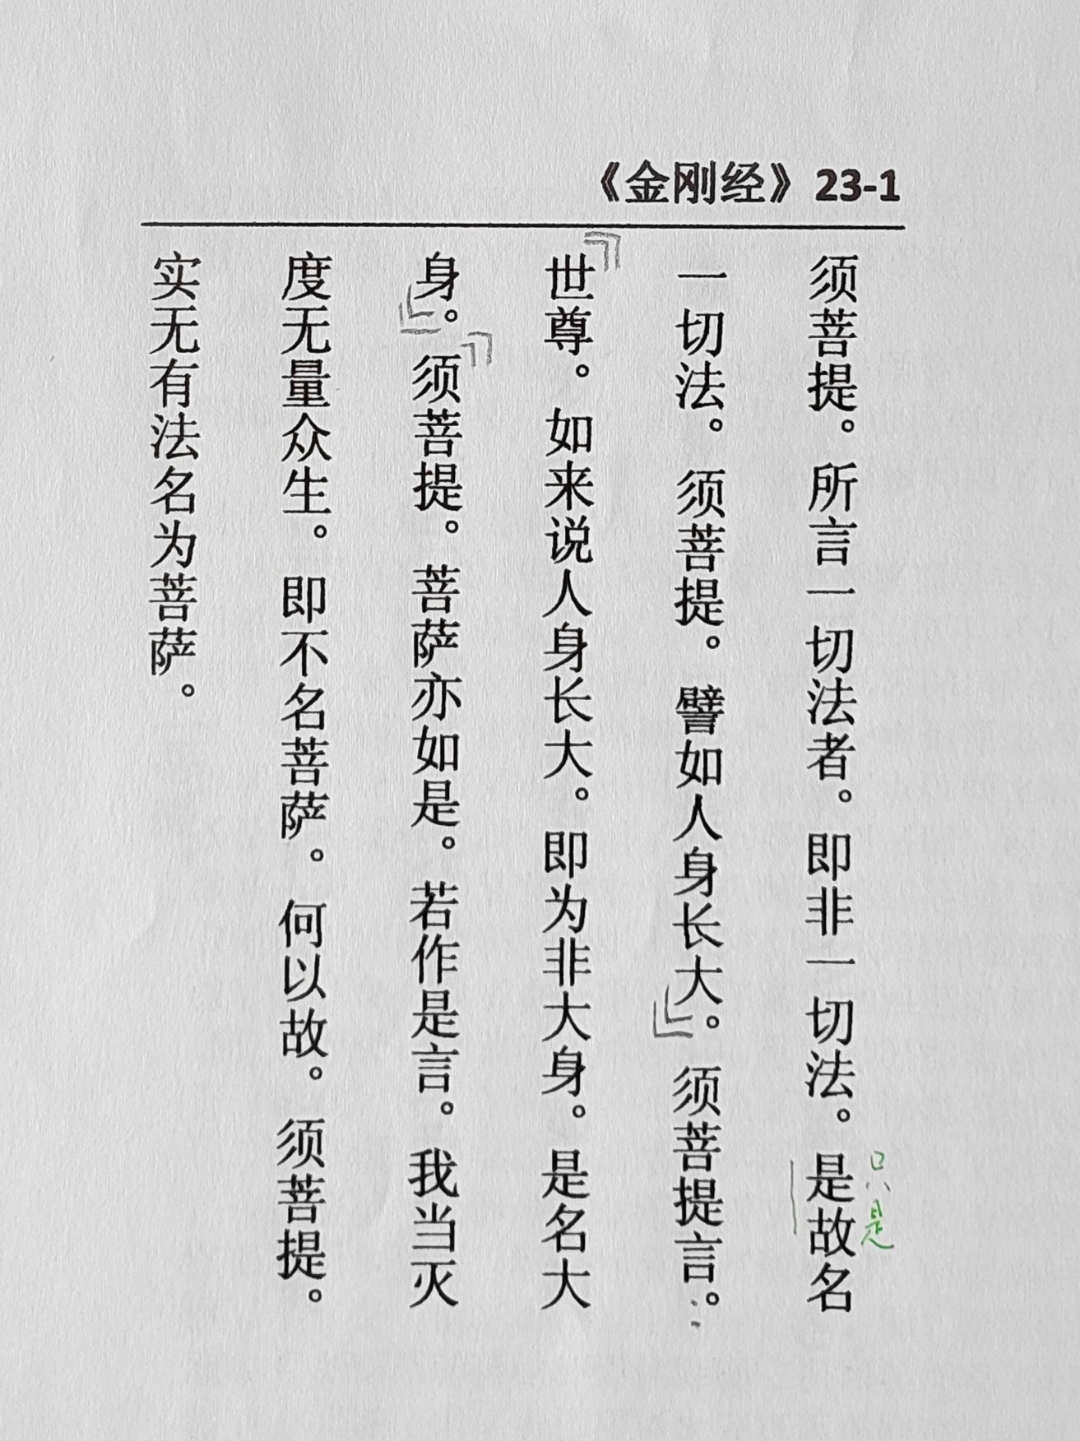 《金刚经》23-1
须菩提。所言一切法者。即非一切法。是故名
只是
一切法。须菩提。譬如人身长大。』须菩提言。：
『世尊。如来说人身长大。即为非大身。是名大
身。』『须菩提。菩萨亦如是。若作是言。我当灭
度无量众生。即不名菩萨。何以故。须菩提。
实无有法名为菩萨。